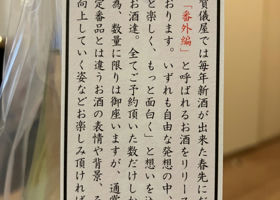 賀儀屋では毎年新酒が出来た春先に
「番外編」と呼ばれるお酒をリリース
おります。いずれも自由な発想の中、
と楽しく、もっと面白く」と想いを込
お酒達。全てご予約頂いた数だけしか
為、数量に限りは御座いますが、通常
定番品とは違うお酒の表情や背景、そ
向上していく姿などお楽しみ頂ければ